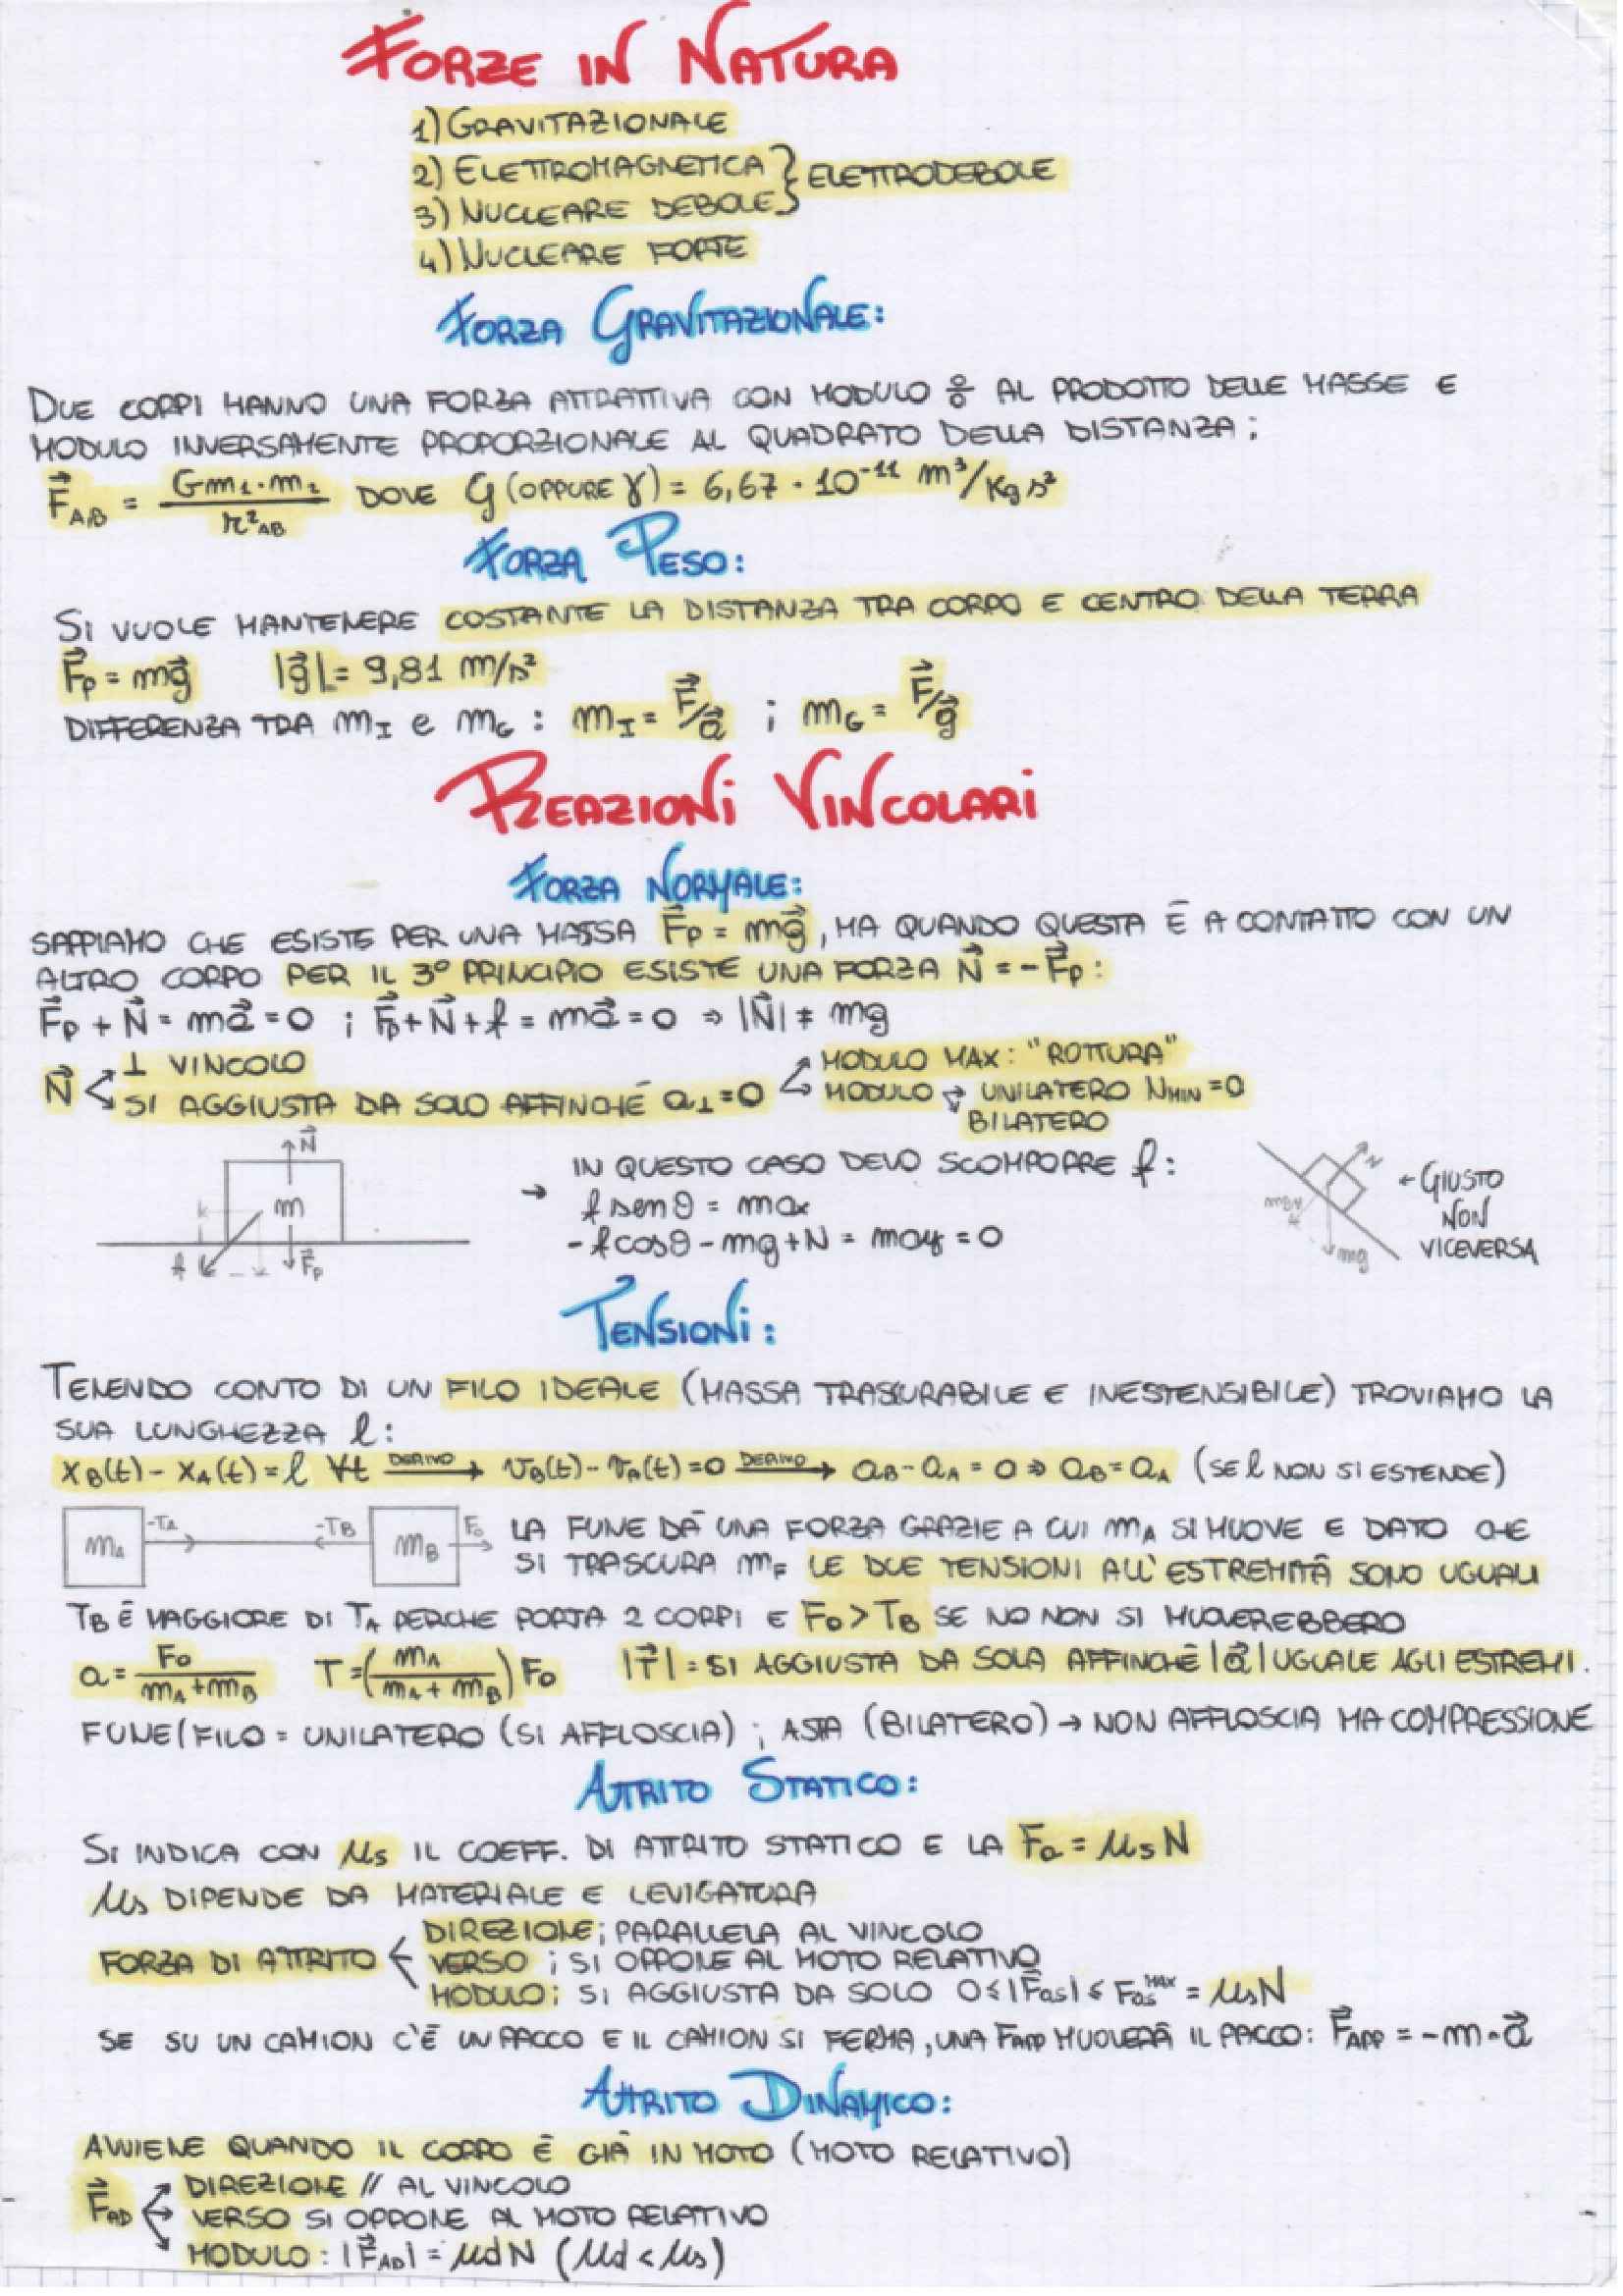 FORZE IN NATURA
1) GRAVITAZIONALE
2) ELETTROMAGNETICA } ELETTRODEBOLE
3) NUCLEARE DEBOLE
4) NUCLEARE FORTE
FORZA GRAVITAZIONALE:
DUE CORPI HANNO UNA FORZA ATTRATTIVA CON MODULO % AL PRODOTTO DELLE MASSE E
MODULO INVERSAMENTE PROPORZIONALE AL QUADRATO DELLA DISTANZA:
F⃗AB = Gm1·m2 / r²AB DOVE G (OPPURE γ) = 6,67 · 10⁻¹¹ m³/Kg s²
FORZA PESO:
SI VUOLE MANTENERE COSTANTE LA DISTANZA TRA CORPO E CENTRO DELLA TERRA
F⃗p = mg⃗ |g⃗| = 9,81 m/s²
DIFFERENZA TRA mI e mG : mI = F⃗/a⃗ ; mG = F⃗/g⃗
REAZIONI VINCOLARI
FORZA NORMALE:
SAPPIAMO CHE ESISTE PER UNA MASSA F⃗p = mg⃗, MA QUANDO QUESTA È A CONTATTO CON UN
ALTRO CORPO PER IL 3° PRINCIPIO ESISTE UNA FORZA N⃗ = -F⃗p:
F⃗p + N⃗ = ma⃗ = 0 ; F⃗p + N⃗ + f = ma⃗ = 0 ⇒ |N⃗| ≠ mg
N⃗ ⊥ VINCOLO
SI AGGIUSTA DA SOLO AFFINCHÉ a⊥ = 0
MODULO MAX: "ROTTURA"
MODULO → UNILATERO NMIN = 0
BILATERO
N⃗
m
f
F⃗p
→ IN QUESTO CASO DEVO SCOMPORRE f:
f senθ = max
-f cosθ - mg + N = may = 0
N
mg
← GIUSTO
NON
VICEVERSA
TENSIONI:
TENENDO CONTO DI UN FILO IDEALE (MASSA TRASCURABILE E INESTENSIBILE) TROVIAMO LA
SUA LUNGHEZZA l:
xB(t) - xA(t) = l ∀t DERIVO→ vB(t) - vA(t) = 0 DERIVO→ aB - aA = 0 ⇒ aB = aA (SE l NON SI ESTENDE)
mA -TA -TB mB F0
LA FUNE DÀ UNA FORZA GRAZIE A CUI mA SI MUOVE E DATO CHE
SI TRASCURA mF LE DUE TENSIONI ALL'ESTREMITÀ SONO UGUALI
TB È MAGGIORE DI TA PERCHE PORTA 2 CORPI E F0 > TB SE NO NON SI MUOVEREBBERO
a = F0 / mA + mB T = (mA / mA + mB) F0 |T⃗| = SI AGGIUSTA DA SOLA AFFINCHÉ |a⃗| UGUALE AGLI ESTREMI.
FUNE/FILO = UNILATERO (SI AFFLOSCIA) ; ASTA (BILATERO) → NON AFFLOSCIA MA COMPRESSIONE
ATTRITO STATICO:
SI INDICA CON μs IL COEFF. DI ATTRITO STATICO E LA Fa = μs N
μs DIPENDE DA MATERIALE E LEVIGATURA
FORZA DI ATTRITO < DIREZIONE; PARALLELA AL VINCOLO
VERSO ; SI OPPONE AL MOTO RELATIVO
MODULO; SI AGGIUSTA DA SOLO 0 ≤ |F⃗as| ≤ Fas MAX = μs N
SE SU UN CAMION C'È UN PACCO E IL CAMION SI FERMA, UNA FAPP MUOVERÀ IL PACCO: F⃗APP = -m · a⃗
ATTRITO DINAMICO:
AVVIENE QUANDO IL CORPO È GIÀ IN MOTO (MOTO RELATIVO)
F⃗AD DIREZIONE // AL VINCOLO
VERSO SI OPPONE AL MOTO RELATIVO
MODULO: |F⃗AD| = μd N (μd < μs)